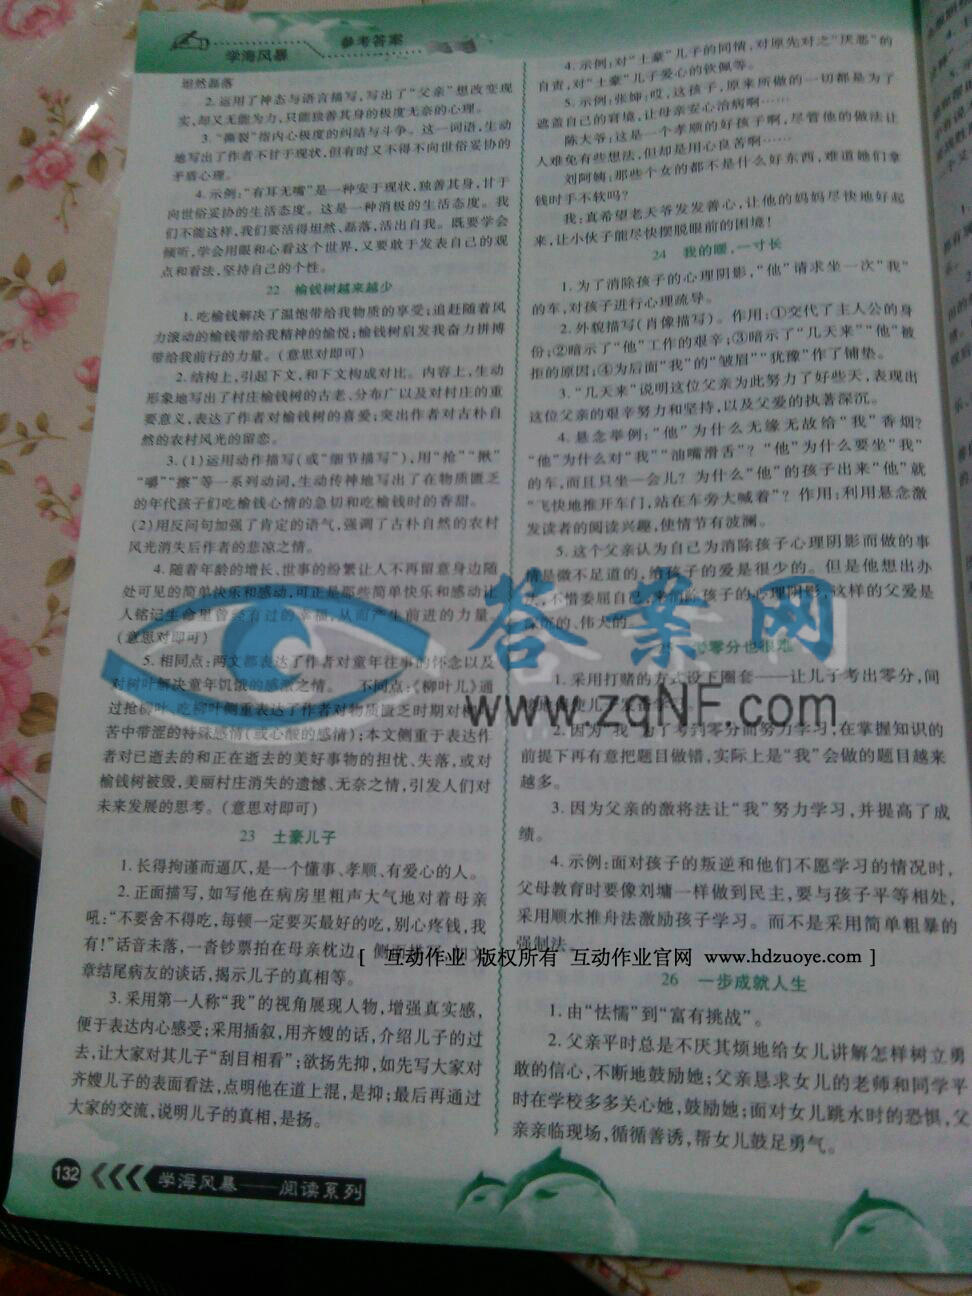 学海风暴
参考答案
坦然磊落
2.运用了神态与语言描写,写出了“父亲”想改变现
实,却又无能为力,只能独善其身的极度无奈的心理。
3.“撕裂”指内心极度的纠结与斗争。这一词语,生动
地写出了作者不甘于现状,但有时又不得不向世俗妥协的
矛盾心理。
4.示例:“有耳无嘴”是一种安于现状,独善其身,甘于
向世俗妥协的生活态度。这是一种消极的生活态度。我
们不能这样,我们要活得坦然、磊落,活出自我。既要学会
倾听,学会用眼和心看这个世界,又要敢于发表自己的观
点和看法,坚持自己的个性。
22 榆钱树越来越少
1.吃榆钱解决了温饱带给我物质的享受;追赶随着风
力滚动的榆钱带给我精神的愉悦;榆钱树启发我奋力拼搏
带给我前行的力量。(意思对即可)
2.结构上,引起下文,和下文构成对比。内容上,生动
形象地写出了村庄榆钱树的古老、分布广以及对村庄的重
要意义,表达了作者对榆钱树的喜爱;突出作者对古朴自
然的农村风光的留恋。
3.(1)运用动作描写(或“细节描写”),用“抢”“揪”
“嚼”“擦”等一系列动词,生动传神地写出了在物质匮乏
的年代孩子们吃榆钱心情的急切和吃榆钱时的香甜。
(2)用反问句加强了肯定的语气,强调了古朴自然的农村
风光消失后作者的悲凉之情。
4.随着年龄的增长、世事的纷繁让人不再留意身边随
处可见的简单快乐和感动,可正是那些简单快乐和感动让
人铭记生命里曾经有过的幸福,从而产生前进的力量。
(意思对即可)
5.相同点:两文都表达了作者对童年往事的怀念以及
对树叶解决童年饥饿的感激之情。 不同点:《柳叶儿》通
过抢柳叶、吃柳叶侧重表达了作者对物质匮乏时期对
苦中带涩的特殊感情(或心酸的感情);本文侧重于表达作
者对已逝去的和正在逝去的美好事物的担忧、失落,或对
榆钱树被毁,美丽村庄消失的遗憾、无奈之情,引发人们对
未来发展的思考。(意思对即可)
23 土豪儿子
1.长得拘谨而逼仄,是一个懂事、孝顺、有爱心的人。
2.正面描写,如写他在病房里粗声大气地对着母亲
吼:“不要舍不得吃,每顿一定要买最好的吃,别心疼钱,我
有!”话音未落,一沓钞票拍在母亲枕边。侧面描写,如文
章结尾病友的谈话,揭示儿子的真相等。
3.采用第一人称“我”的视角展现人物,增强真实感,
便于表达内心感受;采用插叙,用齐嫂的话,介绍儿子的过
去,让大家对其儿子“刮目相看”;欲扬先抑,如先写大家对
齐嫂儿子的表面看法,点明他在道上混,是抑;最后再通过
大家的交流,说明儿子的真相,是扬。
4.示例:对“土豪”儿子的同情,对原先对之“厌恶”的
自责,对“土豪”儿子爱心的钦佩等。
5.示例:张婶:哎,这孩子,原来所做的一切都是为了
遮盖自己的窘境,让母亲安心治病啊……
陈大爷:这是一个孝顺的好孩子啊,尽管他的做法让
人难免有些想法,但却是用心良苦啊……
刘阿姨:那些个女的都不是什么好东西,难道她们拿
钱时手不软吗?
我:真希望老天爷发发善心,让他的妈妈尽快地好起
来,让小伙子能尽快摆脱眼前的困境!
24 我的暖,一寸长
1.为了消除孩子的心理阴影,“他”请求坐一次“我”
的车,对孩子进行心理疏导。
2.外貌描写(肖像描写)。作用:①交代了主人公的身
份;②暗示了“他”工作的艰辛;③暗示了“几天来”“他”被
拒的原因;④为后面“我”的“皱眉”“犹豫”作了铺垫。
3.“几天来”说明这位父亲为此努力了好些天,表现出
这位父亲的艰辛努力和坚持,以及父爱的执著深沉。
4.悬念举例:“他”为什么无缘无故给“我”香烟?
“他”为什么对“我”“油嘴滑舌”?“他”为什么要坐“我”
的车,而且只坐一会儿?为什么“他”的孩子出来“他”就
“飞快地推开车门,站在车旁大喊着”?作用:利用悬念激
发读者的阅读兴趣,使情节有波澜。
5.这个父亲认为自己为消除孩子心理阴影而做的事
情是微不足道的,给孩子的爱是很少的。但是他想出办
法,不惜委屈自己,来消除孩子的心理阴影,这样的父爱是
深沉的、伟大的。
答案网
www.zqNF.com
零分也很难
1.采用打赌的方式设下圈套——让儿子考出零分,间
2.因为“我”为了考到零分而努力学习,在掌握知识的
前提下再有意把题目做错,实际上是“我”会做的题目越来
越多。
3.因为父亲的激将法让“我”努力学习,并提高了成
绩。
4.示例:面对孩子的叛逆和他们不愿学习的情况时,
父母教育时要像刘墉一样做到民主,要与孩子平等相处,
采用顺水推舟法激励孩子学习。而不是采用简单粗暴的
强制法。
[ 互动作业 版权所有 互动作业官网 www.hdzuoye.com ]
26 一步成就人生
1.由“怯懦”到“富有挑战”。
2.父亲平时总是不厌其烦地给女儿讲解怎样树立勇
敢的信心,不断地鼓励她;父亲恳求女儿的老师和同学平
时在学校多多关心她,鼓励她;面对女儿跳水时的恐惧,父
亲亲临现场,循循善诱,帮女儿鼓足勇气。
132
学海风暴——阅读系列